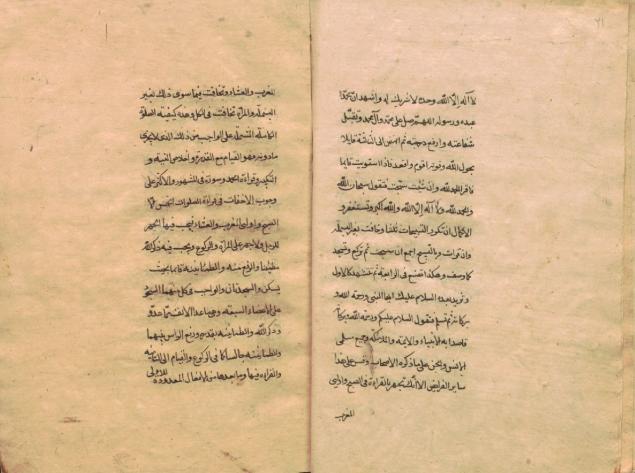 ٧١
لا آله إلّا اللّه وحده لا شريك له واشهد انّ محمّدا
عبده ورسوله اللهمّ صل على محمّد وآل محمّد وتقبّل
شفاعته وارفع درجته ثم انهض الى الثالثة قايلا
بحول اللّه وقوته اقوم واقعد فاذا استويت قايما
فاقرا الحمد للّه وان شئت سبّحت فتقول سبحان اللّه
والحمد للّه ولا آله إلّا اللّه واللّه اكبر وتستغفر و
الاكمال ان تكرر التسبيحات ثلثا وخافت بغير البسملة
وان قرات وبالتسبيح اجمع ان سبحت ثم تركع وتسجد
كما وصف وهكذا تصنع في الرابعة ثم تتشهد كالاول
وتزيد بعده السلام عليك ايها النبي ورحمة اللّه و
بركاته ثم تسلم فتقول السلام عليكم ورحمة اللّه وبركاته
قاصدا به الانبياء والايمة والملائكة وجميع مسلمي
الانس والجن على ما ذكره الاصحاب وقس على هذا
ساير الفرايض الا انّك تجهر بالقراءة في الصبح واوليي
المغرب
المغرب والعشاء وتخافت فيما سوى ذلك بغير
البسملة والمراة تخافت في الكل وهذه كيفية الصلوة
الكاملة المشتمل على الواجب من ذلك الذي لا يجزي
ما دونه وهو القيام مع القدرة واخلاص النية و
التكبير وقراءة الحمد وسورة في المشهور والاكثر على
وجوب الاخفات في قراءة الصلوات الخمس عدا
الصبح واوليي المغرب والعشاء فيجب فيها الجهر
للرجل ولا جهر على المراة والركوع ويجب فيه ذكر اللّه
مطمئنا والرفع منه والطمانينة قايما بحيث
يسكن والسجدتان والواجب في كل منهما السجود
على الاعضاء السبعة وهي ما عدا الانف
وذكر اللّه والطمانينة بقدره ورفع الراس منهما
والطمانينة جالسا كما في الركوع والقيام الى الثانية
والقراءة فيها وما بعدها من الافعال المعدودة للاولى